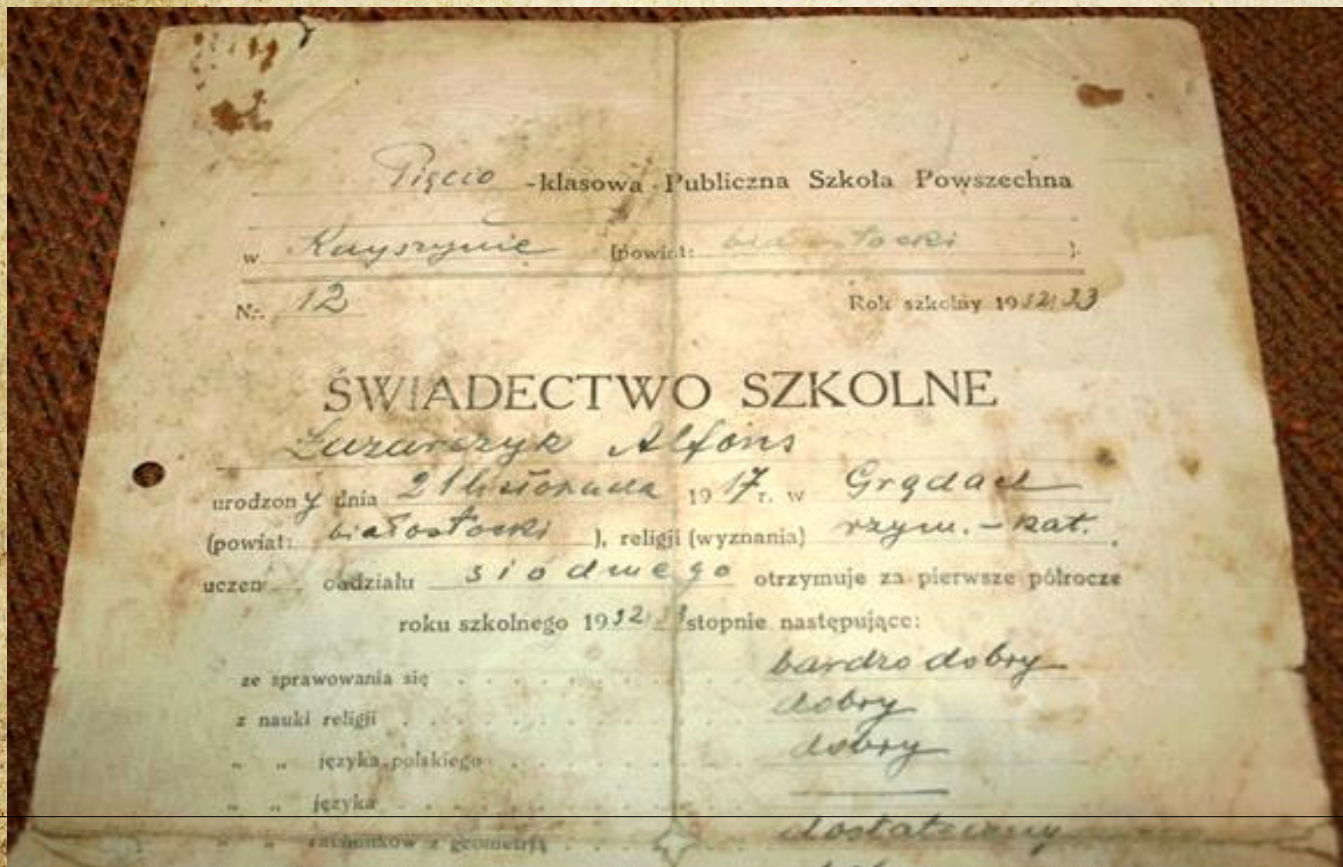 Pięcio -klasowa Publiczna Szkoła Powszechna
w Knyszynie (powiat: białostocki ).
Nr. 12 Rok szkolny 1932/33
ŚWIADECTWO SZKOLNE
Łazarczyk Alfons
urodzony dnia 21 listopada 1917 r. w Grądach
(powiat: białostocki ), religji (wyznania) rzym.-kat.,
uczeń oddziału siódmego otrzymuje za pierwsze półrocze
roku szkolnego 1932/33 stopnie następujące:
ze sprawowania się . . . . . . . bardzo dobry
z nauki religji . . . . . . . dobry
„ „ języka polskiego . . . . . . dobry
„ „ języka . . . . . . . —
„ „ rachunków z geometrją . . . . dostateczny